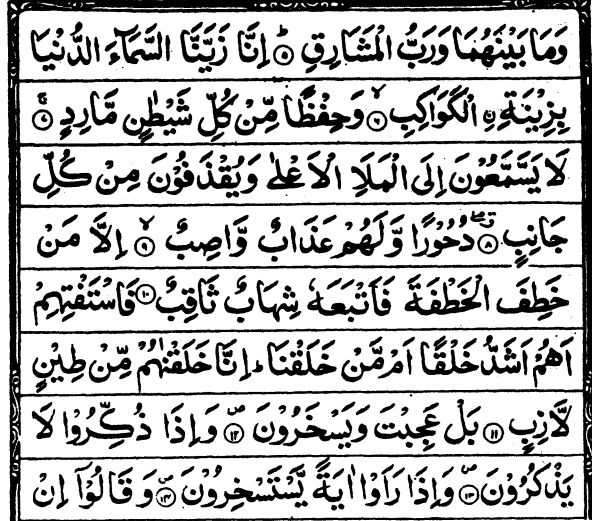 وَمَا بَيْنَهُمَا وَرَبُّ الْمَشَارِقِ ۝۵ اِنَّا زَيَّنَّا السَّمَآءَ الدُّنْيَا
بِزِيْنَةِ ۨ الْكَوَاكِبِ ۝۶ وَحِفْظًا مِّنْ كُلِّ شَيْطٰنٍ مَّارِدٍ ۝۷
لَا يَسَّمَّعُوْنَ اِلَى الْمَلَاِ الْاَعْلٰى وَيُقْذَفُوْنَ مِنْ كُلِّ
جَانِبٍ ۝۸ دُحُوْرًا وَّلَهُمْ عَذَابٌ وَّاصِبٌ ۝۹ اِلَّا مَنْ
خَطِفَ الْخَطْفَةَ فَاَتْبَعَهٗ شِهَابٌ ثَاقِبٌ ۝۱۰ فَاسْتَفْتِهِمْ
اَهُمْ اَشَدُّ خَلْقًا اَمْ مَّنْ خَلَقْنَا ؕ اِنَّا خَلَقْنٰهُمْ مِّنْ طِيْنٍ
لَّازِبٍ ۝۱۱ بَلْ عَجِبْتَ وَيَسْخَرُوْنَ ۝۱۲ وَاِذَا ذُكِّرُوْا لَا
يَذْكُرُوْنَ ۝۱۳ وَاِذَا رَاَوْا اٰيَةً يَّسْتَسْخِرُوْنَ ۝۱۴ وَقَالُوْۤا اِنْ